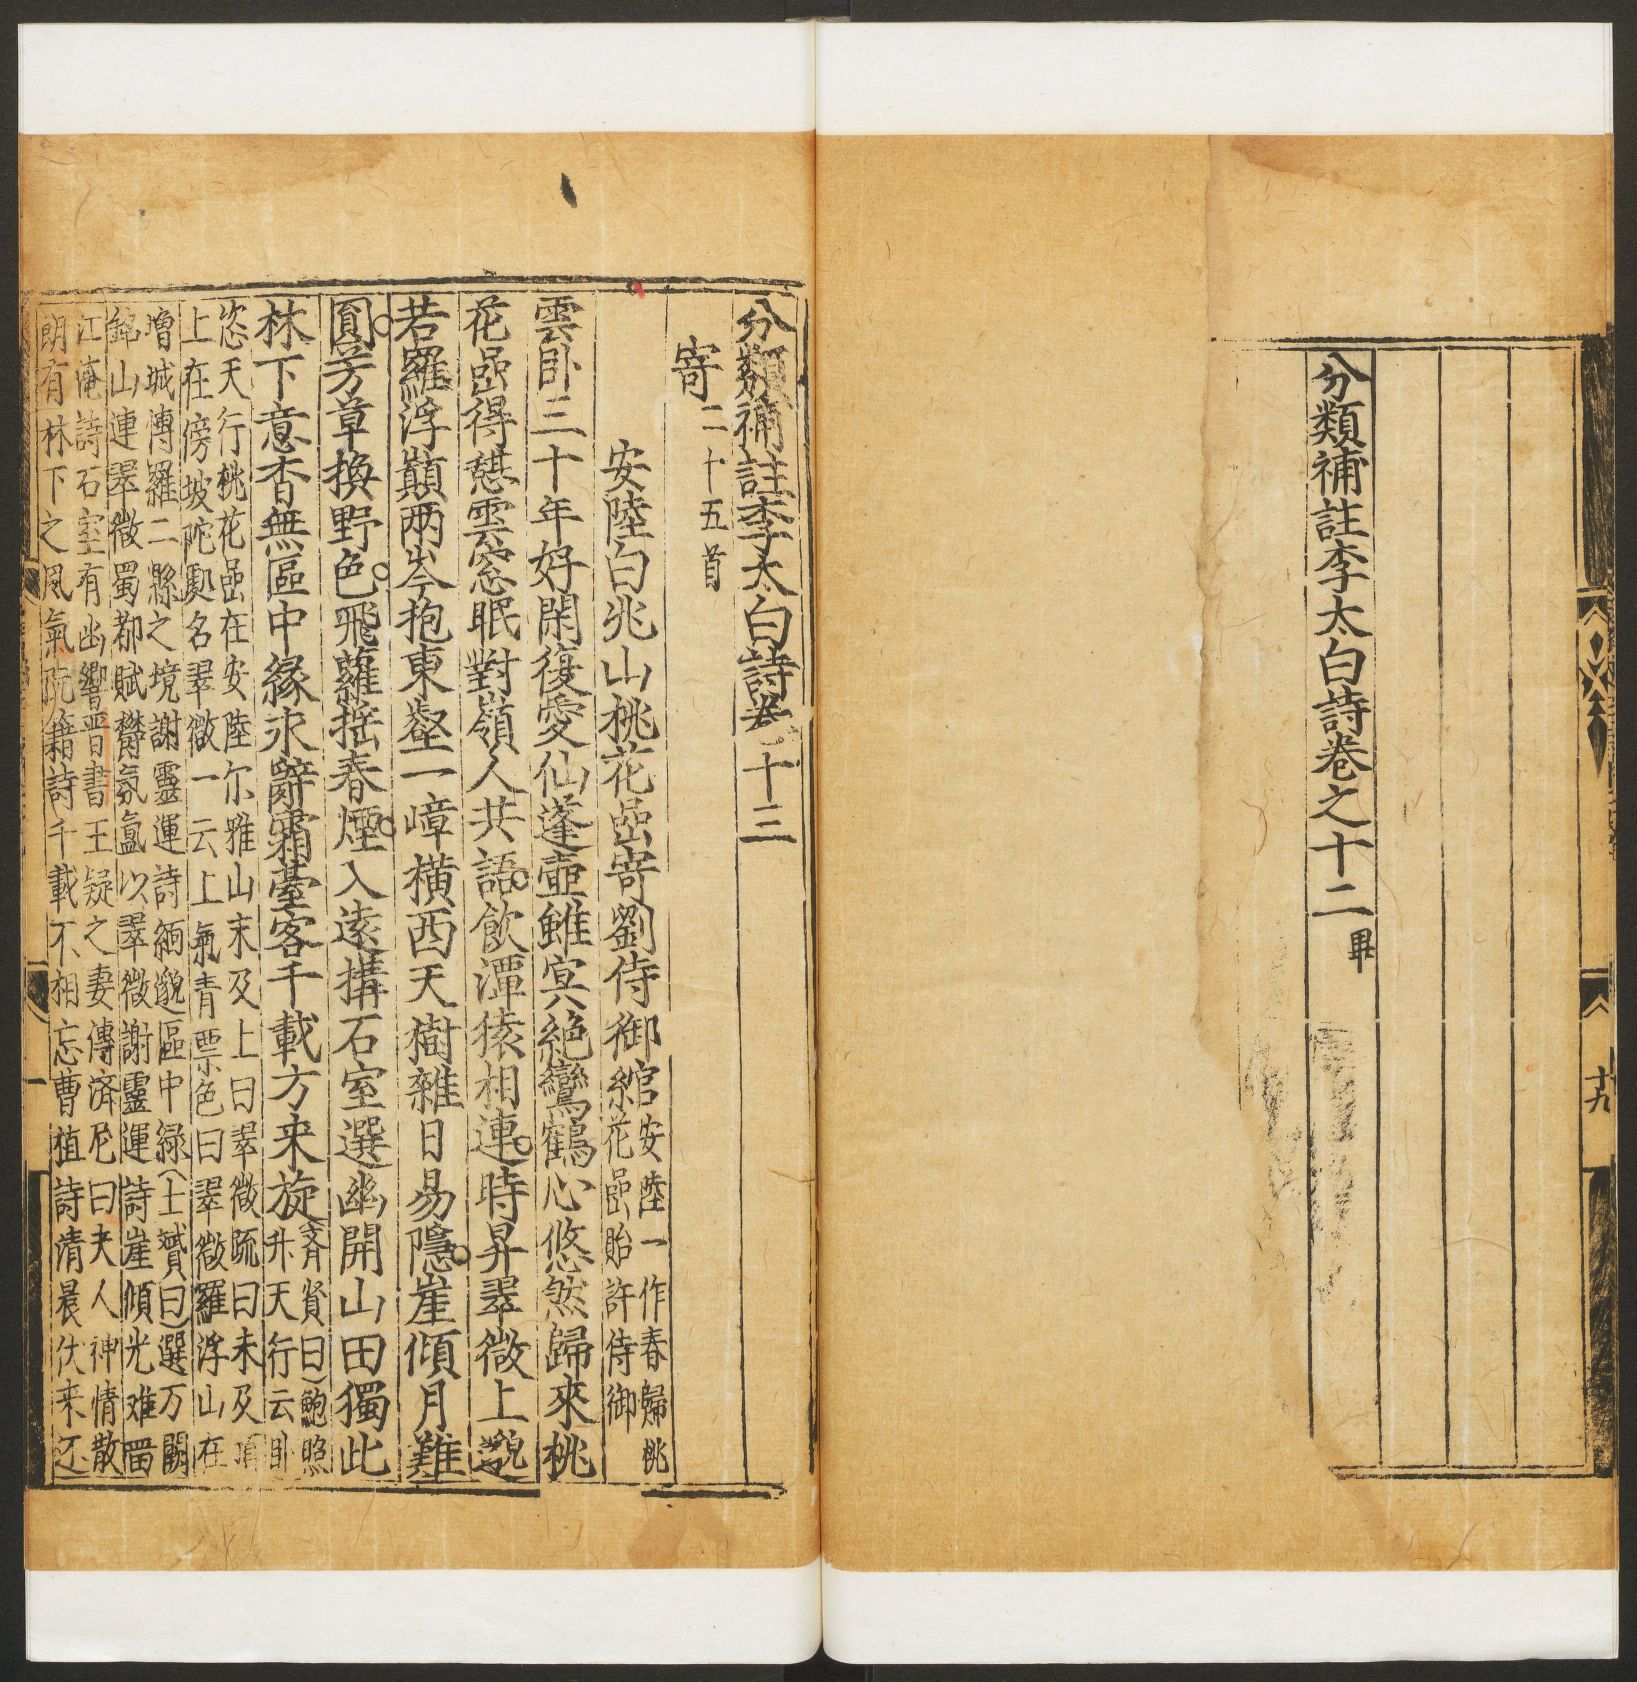 分類補註李太白詩卷之十二 畢
十九
分類補註李太白詩卷十三
寄 二十五首
安陸白兆山桃花嵒寄劉侍御綰 安陸一作春歸桃
花嵒貽許侍御
雲卧三十年好閑復愛仙蓬壺雖㝠絶鸞鶴心悠然歸來桃
花嵒得憇雲窓眠對嶺人共語飲潭猿相連時昇翠微上邈
若羅浮巔兩岑抱東壑一嶂橫西天樹雜日易隱崖傾月難
圓芳草換野色飛蘿摇春煙入遠搆石室選幽開山田獨此
林下意杳無區中緣永辭霜臺客千載方来旋 齊賢曰鮑照
升天行云卧
恣天行桃花嵒在安陸尔雅山未及上曰翠微疏曰未及頂
上在傍坡陀䖏名翠微一云上氣青縹色曰翠微羅浮山在
増城博羅二縣之境謝靈運詩緬邈區中緑士贇曰選万闕
錦山連翠微蜀都賦欝氛氳以翠微謝靈運詩崖傾光难畱
江淹詩石室有幽響晋書王疑之妻傳済尼曰夫人神情散
朗有林下之風氣阮籍詩千載不相忘曹植詩清晨伏来还
一